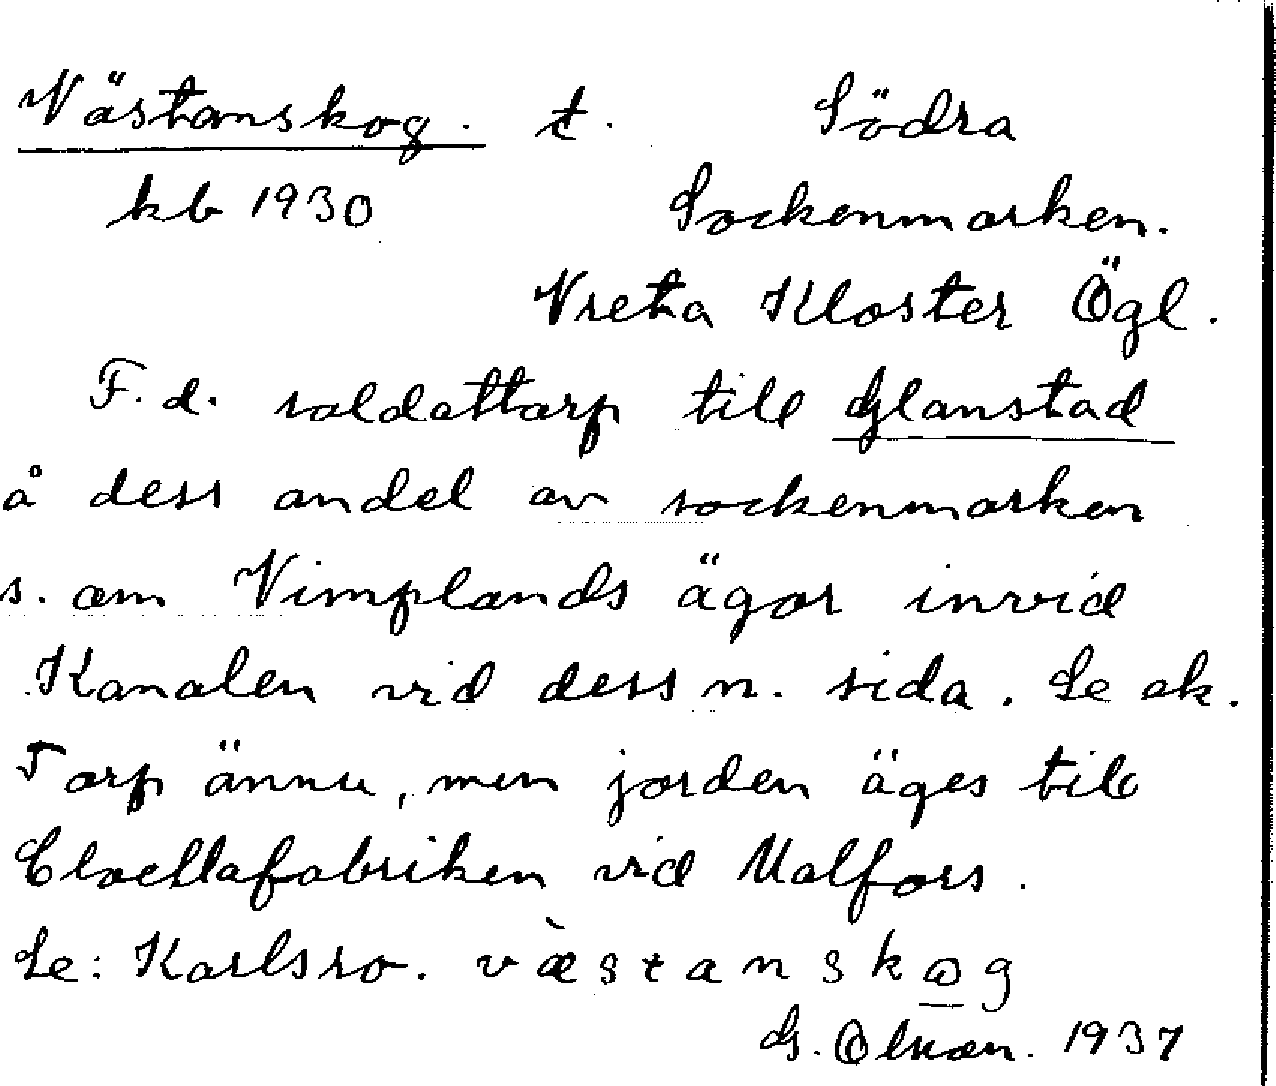 Västanskog. t. Södra
kb 1930 Sockenmarken.
Vreta Kloster Ögl.
F. d. soldattorp till Glanstad
å dess andel av sockenmarken
s. om Vimplands ägor invid
Kanalen vid dess n. sida. Se ek.
Torp ännu, men jorden äges till
Cloettafabriken vid Malfors.
Se: Karlsro. væ̀stanskog
G. Olson. 1937